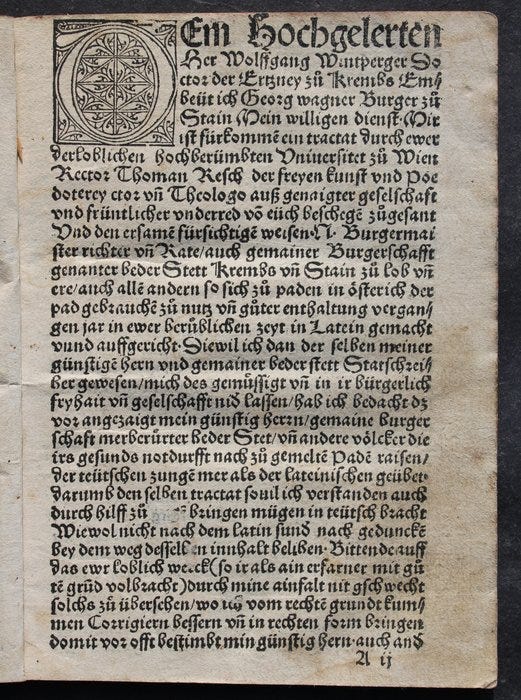 DEm Hochgelerten
Her Wolffgang Wintperger Do
ctor der Ertzney zů Krembs Em⸗
beüt ich Georg wagner Burger zů
Stain Mein willigen dienst. Mir
ist fürkommē ein tractat durch ewer
derloblichen hochberümbten Vniuersitet zů Wien
Rector Thoman Resch der freyen kunst vnd Poe
doterey ctor vn̄ Theologo auß genaigter geselschaft
vnd früntlicher vnderred vō eüch beschegē zůgesant
Vnd den ersamē fürsichtigē weisen. N. Burgermai
ster richter vn̄ Rate/auch gemainer Burgerschafft
genanter beder Stett Krembs vn̄ Stain zů lob vn̄
ere/auch allē andern so sich zů paden in österich der
pad gebrauchē zů nutz vn̄ gůter enthaltung vergan⸗
gen jar in ewer berůblichen zeyt in Latein gemacht
vnnd auffgericht. Diewil ich dan der selben meiner
günstigē hern vnd gemainer beder stett Statschrei⸗
ber gewesen/mich des gemüssigt vn̄ in ir bürgerlich
fryhait vn̄ geselschafft nid lassen/hab ich bedacht dz
vor angezaigt mein günstig herrn/gemaine burger
schaft merberürter beder Stet/vn̄ andere völcker die
irs gesunds notdurfft nach zů gemeltē Padē raisen/
der teütschen zungē mer als der lateinischen geübet.
darumb den selben tractat souil ich verstanden auch
durch hilff zů bringen mügen in teütsch bracht
Wiewol nicht nach dem latin sund nach geduncke͂
bey dem weg desselben innhalt beliben. Bittende auff
das ewr loblich werck(so ir als ain erfarner mit gů
tē grūd volbracht)durch mine ainfalt nit gschwecht
solchs zů übersehen/wo vom rechtē grundt kum⸗
men Corrigiern bessern vn̄ in rechten form bringen
domit vor offt bestimbt min günstig hern. auch and
A ij